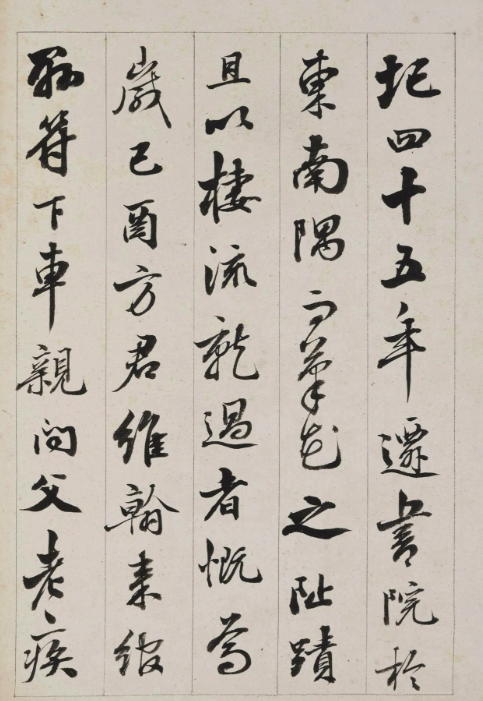 圮四十五年遷書院於
東南隅而筆花之阯蹟
且以棲流過者慨焉
歲己酉方君維翰來綰
縣符下車親問父老疾